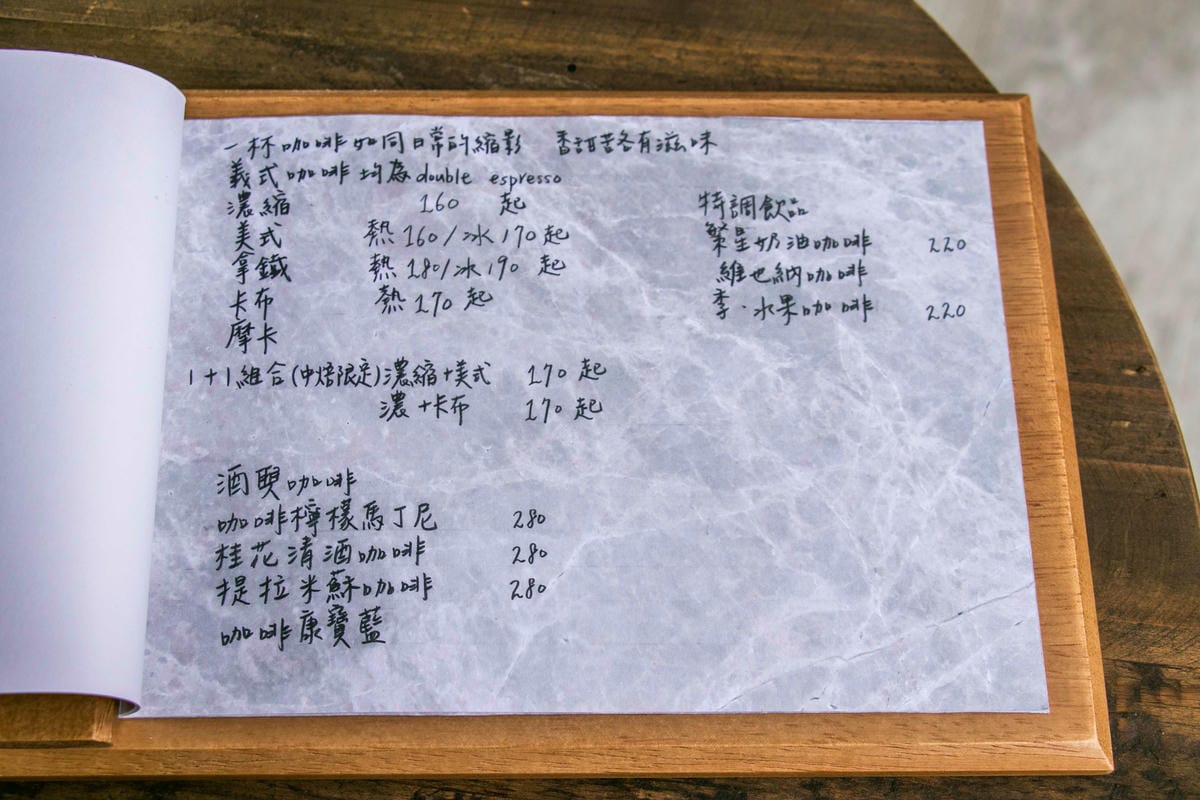 一杯咖啡如同日常的縮影 香甜苦各有滋味
義式咖啡均為double espresso
濃縮 160 起
美式 熱160/冰170起
拿鐵 熱180/冰190 起
卡布 熱170起
摩卡
1+1組合(中焙限定)濃縮+美式 170 起
濃+卡布 170 起
特調飲品
繁星奶油咖啡 220
維也納咖啡
季·水果咖啡 220
酒與咖啡
咖啡檸檬馬丁尼 280
桂花清酒咖啡 280
提拉米蘇咖啡 280
咖啡康寶藍